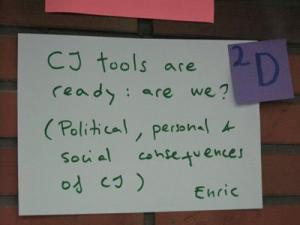 CJ tools are
ready: are we?
(Political, personal &
social consequences
of CJ)
Enric
2D